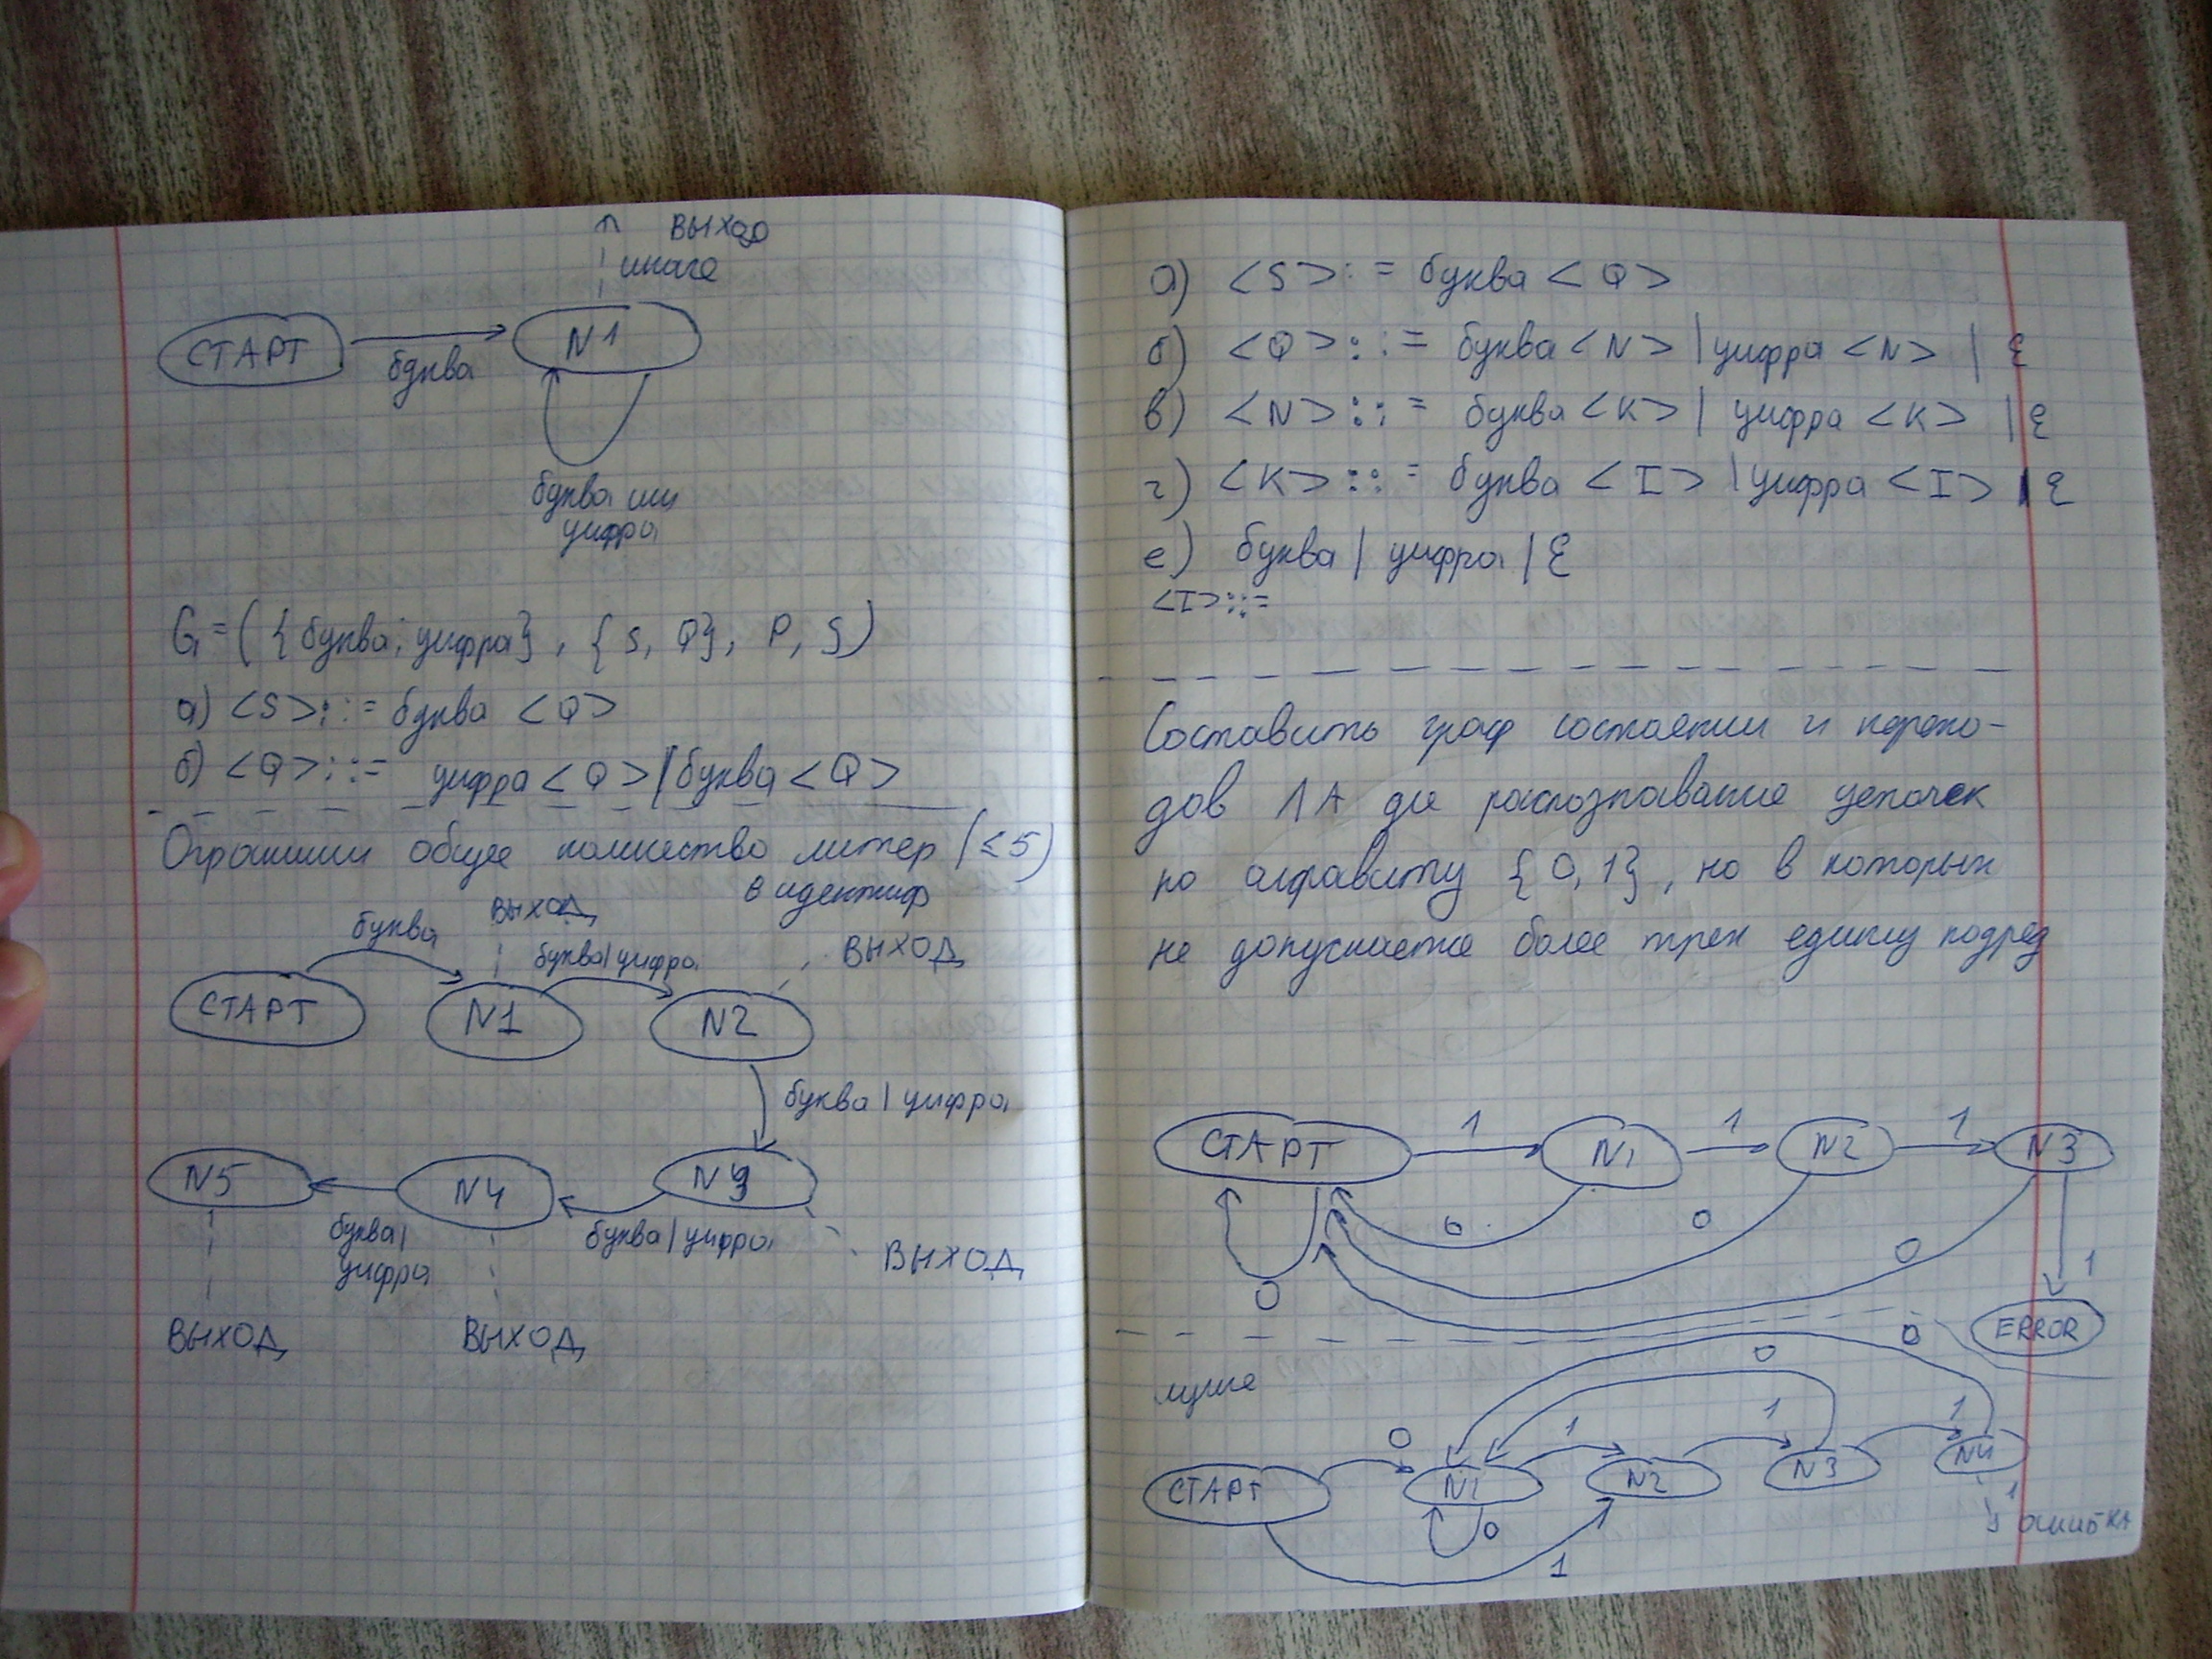 выход
иначе
СТАРТ
N1
буква
буква или
цифра
G = ({буква; цифра}, {S, Q}, P, S)
а) <S>::= буква <Q>
б) <Q>::= цифра <Q> | буква <Q>
Ограничим общее количество литер (≤5)
в идентиф
буква
ВЫХОД
буква|цифра
ВЫХОД
СТАРТ
N1
N2
буква | цифра
N5
N4
N3
буква|
цифра
буква|цифра
ВЫХОД
ВЫХОД
ВЫХОД
а) <S>:= буква <Q>
б) <Q>::= буква <N> | цифра <N> | ε
в) <N>::= буква <K> | цифра <K> | ε
г) <K>::= буква <I> | цифра <I> | ε
е) буква | цифра | ε
<I>::=
Составить граф состоянии и перехо-
дов ЛА для распознавание цепочек
по алфавиту {0, 1}, но в которых
не допускается более трех единиц подряд
СТАРТ 1 N1 1 N2 1 N3
0 0 0 0 1
ERROR
лучше
0 0
0 1 1 1
СТАРТ N1 N2 N3 N4
0 1 1 ошибка